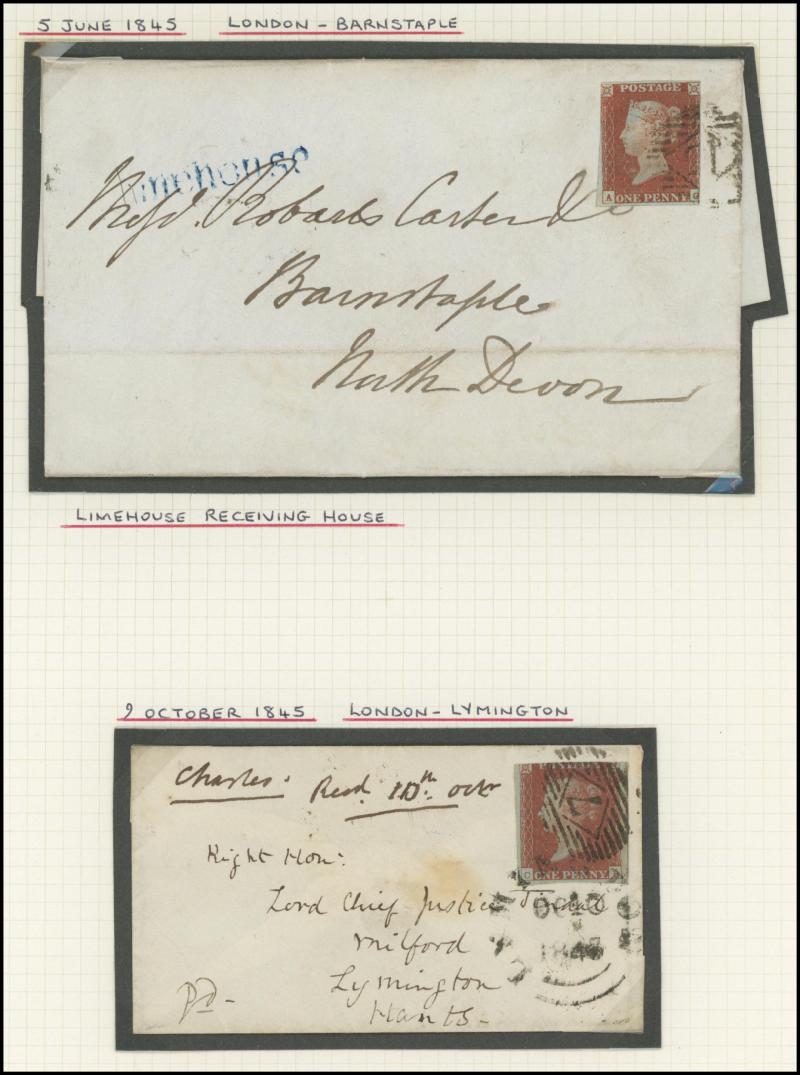 5 JUNE 1845 LONDON - BARNSTAPLE
POSTAGE
Limehouse
A ONE PENNY G
Roberts Carter & Co
Barnstaple
North Devon
LIMEHOUSE RECEIVING HOUSE
9 OCTOBER 1845 LONDON - LYMINGTON
Charles. Recd. 10th. Octr
7
Right Hon:
C ONE PENNY
Lord Chief Justice Tindal
OC 10
Milford
1845
Lymington
pd-
Hants-